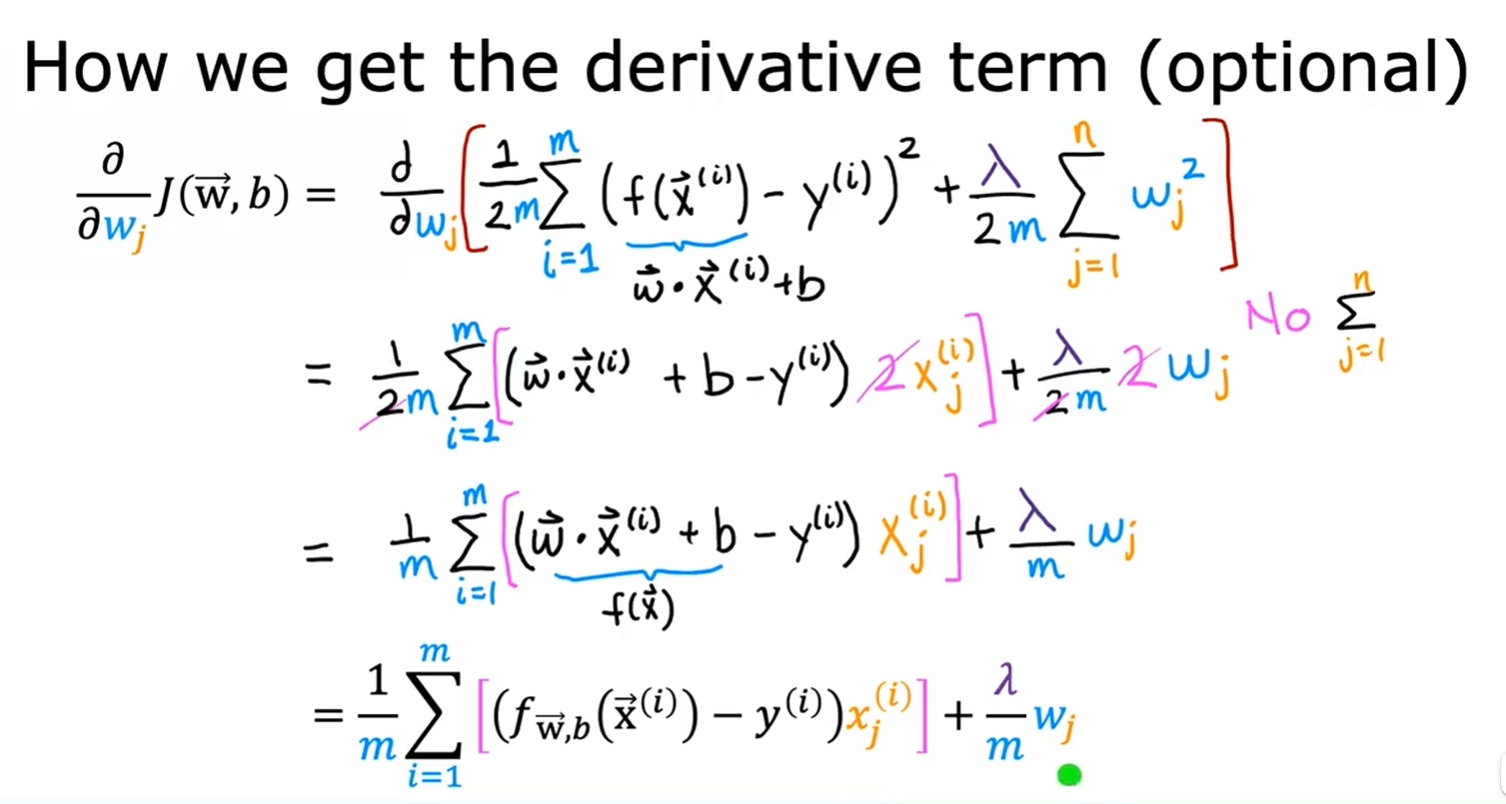 How we get the derivative term (optional)
∂/∂wⱼ J(w⃗, b) = d/dwⱼ [ 1/2m ∑ᵢ₌₁ᵐ (f(x⃗⁽ⁱ⁾) − y⁽ⁱ⁾)² + λ/2m ∑ⱼ₌₁ⁿ wⱼ² ]
w⃗ · x⃗⁽ⁱ⁾ + b
No ∑ⱼ₌₁ⁿ
= 1/2m ∑ᵢ₌₁ᵐ [(w⃗ · x⃗⁽ⁱ⁾ + b − y⁽ⁱ⁾) 2xⱼ⁽ⁱ⁾] + λ/2m 2wⱼ
= 1/m ∑ᵢ₌₁ᵐ [(w⃗ · x⃗⁽ⁱ⁾ + b − y⁽ⁱ⁾) xⱼ⁽ⁱ⁾] + λ/m wⱼ
f(x⃗)
= 1/m ∑ᵢ₌₁ᵐ [(f w⃗,b (x⃗⁽ⁱ⁾) − y⁽ⁱ⁾)xⱼ⁽ⁱ⁾] + λ/m wⱼ